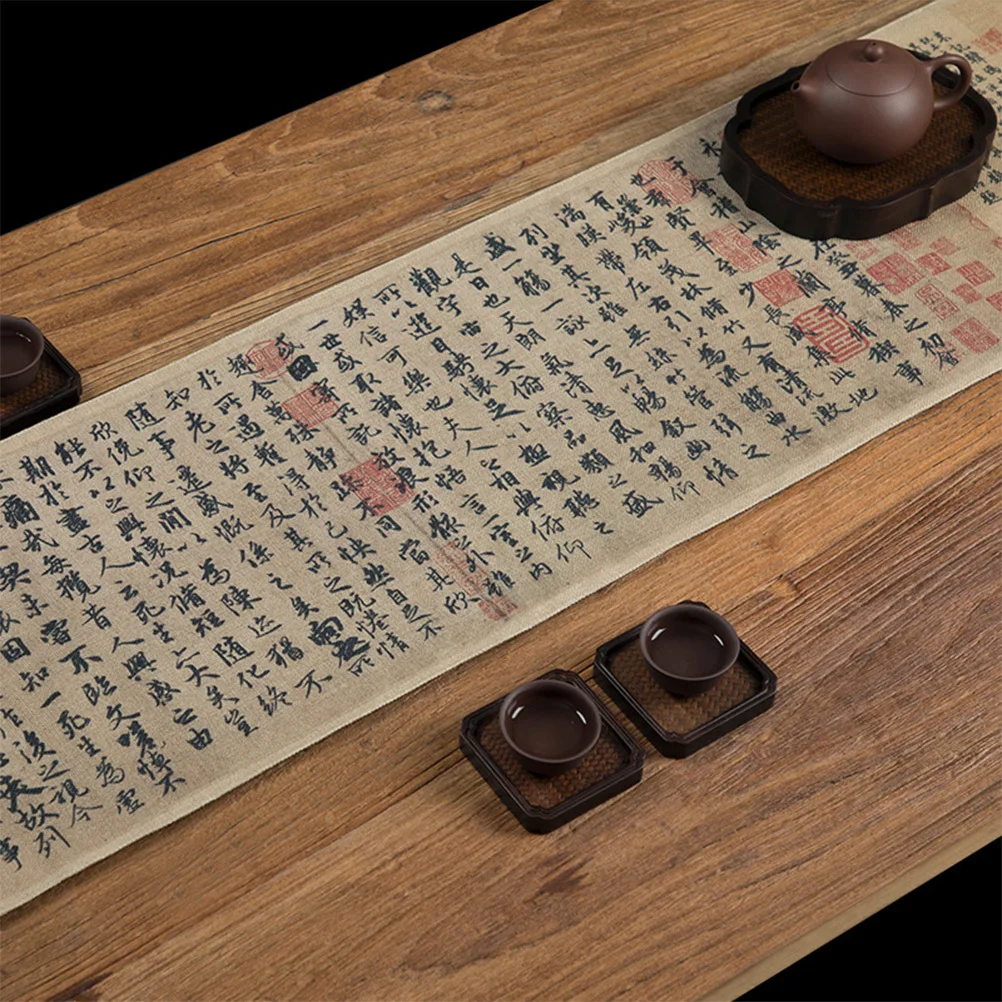 在癸丑暮春之初會
于會稽山陰之蘭亭脩稧事
也群賢畢至少長咸集此地
有峻領茂林脩竹又有清流激
湍暎帶左右引以為流觴曲水
列坐其次雖無絲竹管弦之
盛一觴一詠亦足以暢敘幽情
是日也天朗氣清惠風和暢仰
觀宇宙之大俯察品類之盛
所以遊目騁懷足以極視聽之
娛信可樂也夫人之相與俯仰
一世或取諸懷抱悟言一室之內
或因寄所託放浪形骸之外雖
趣舍萬殊靜躁不同當其欣
於所遇暫得於己怏然自足不
知老之將至及其所之既惓情
隨事遷感慨係之矣向之所
欣俛仰之閒以為陳迹猶不
能不以之興懷況脩短隨化終
期於盡古人云死生亦大矣豈
痛哉每攬昔人興感之由
契未嘗不臨文嗟悼不
固知一死生為虛
作後之視今
夫故列
事